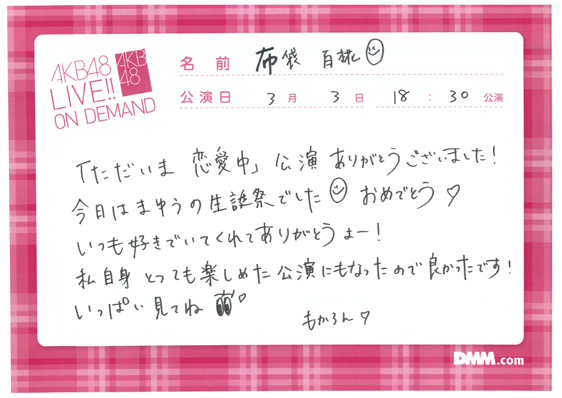 AKB48
LIVE!!
ON DEMAND
AKB
48
名前 布袋 百椛
公演日 3月 3日 18:30 公演
「ただいま 恋愛中」公演 ありがとうございました!
今日は まゆうの生誕祭でした おめでとう♡
いつも好きでいてくれてありがとうよー!
私自身 とっても楽しめた公演にもなったので良かったです!
いっぱい見てね ♡
もかろん♡
DMM.com